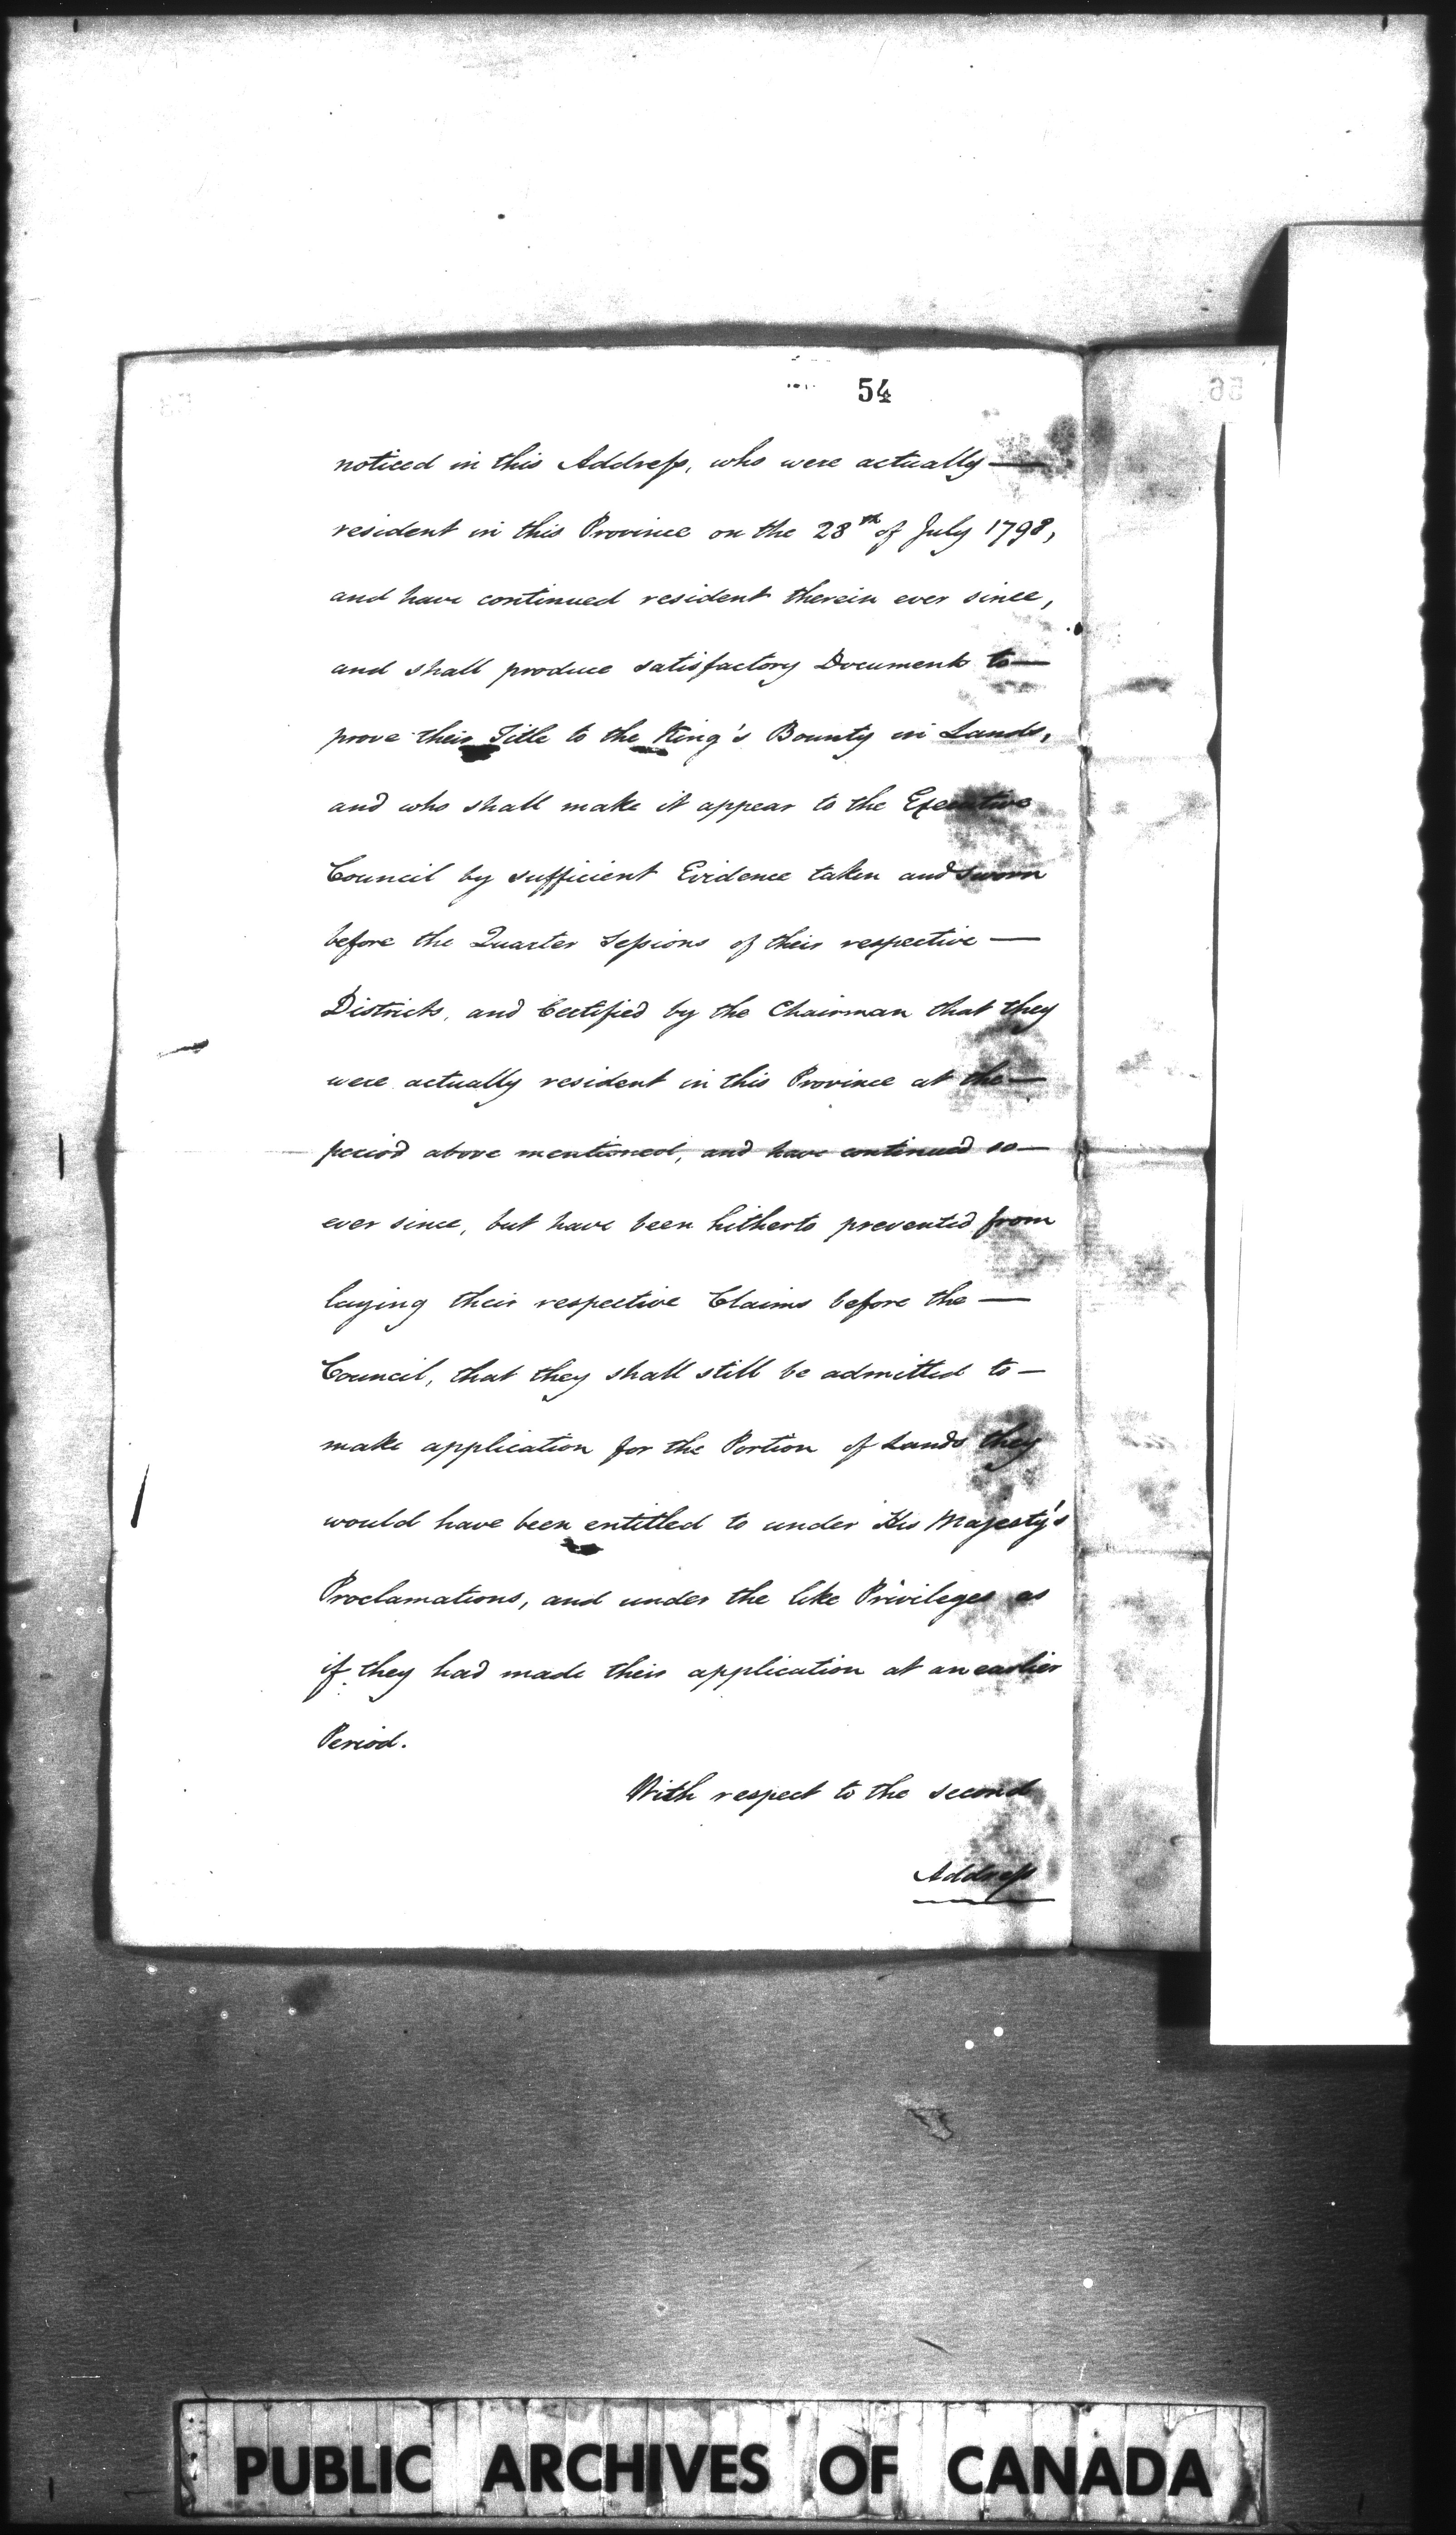 54
noticed in this Address, who were actually —
resident in this Province on the 28th of July 1798,
and have continued resident therein ever since,
and shall produce satisfactory Documents to —
prove their Title to the King's Bounty in Lands,
and who shall make it appear to the Executive
Council by sufficient Evidence taken and sworn
before the Quarter Sessions of their respective —
Districts, and Certified by the Chairman that they
were actually resident in this Province at the —
period above mentioned, and have continued so —
ever since, but have been hitherto prevented from
laying their respective Claims before the —
Council, that they shall still be admitted to —
make application for the Portion of Lands they
would have been entitled to under His Majesty's
Proclamations, and under the like Privileges as
if they had made their application at an earlier
Period.
With respect to the second
Address
PUBLIC ARCHIVES OF CANADA